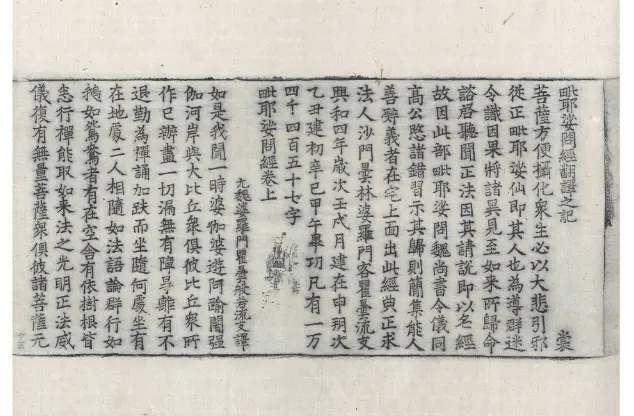 毗耶娑問經翻譯之記 裳
菩薩方便攝化衆生必以大悲引邪
從正毗耶娑仙即其人也為導群迷
令識因果將諸異見至如來所歸命
諮啓聽聞正法因其請說即以名經
故因此部毗耶娑問魏尚書令儀同
高公愍諸錯習示其歸則簡集能人
善辯義者在宅上面出此經典正求
法人沙門曇林婆羅門客瞿曇流支
興和四年歲次壬戌月建在申朔次
乙丑建初辛巳甲午畢功凡有一万
四千四百五十七字
毗耶娑問經卷上
元魏婆羅門瞿曇般若流支譯
如是我聞一時婆伽婆遊阿踰闍強
伽河岸與大比丘衆俱彼比丘衆所
作已辦盡一切漏無有障㝵離有不
退勤為禪誦加趺而坐隨何處坐有
在地處二人相隨如法語論群行如
鵝如鴛鴦者有在空舍有依樹根皆
悉行禪能取如来法之光明正法威
儀復有無量菩薩衆俱彼諸菩薩元